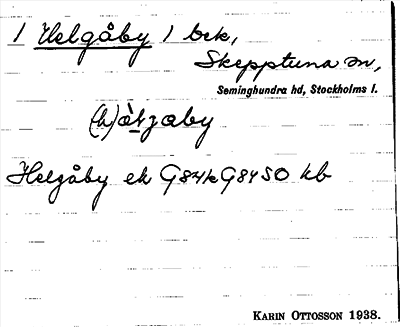 / Helgåby / bek,
Skepptuna sn,
Seminghundra hd, Stockholms l.
(h)àlgaby
Helgåby ek G84k G84SO kb
KARIN OTTOSSON 1938.